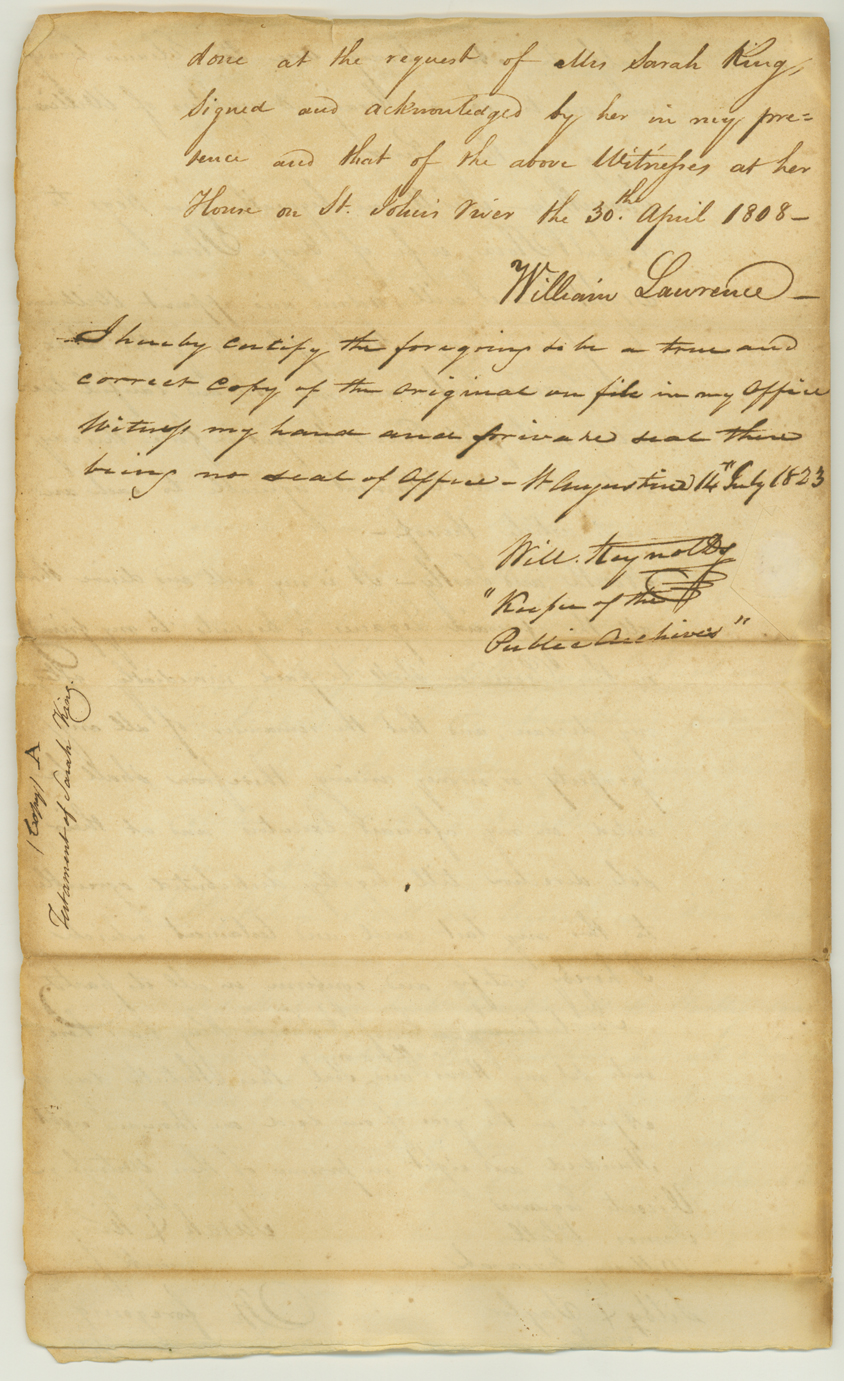 done at the request of Mrs Sarah King,
Signed and acknowledged by her in my pre=
sence and that of the above Witnesses at her
House on St. John's River the 30.th April 1808 –
William Lawrence –
I hereby certify the foregoing to be a true and
correct copy of the original on file in my office
Witness my hand and private seal there
being no seal of office – St Augustine 14" July 1823
Will. Reynolds
"Keeper of the
Public Archives"
(Copy) A
Testament of Sarah King.